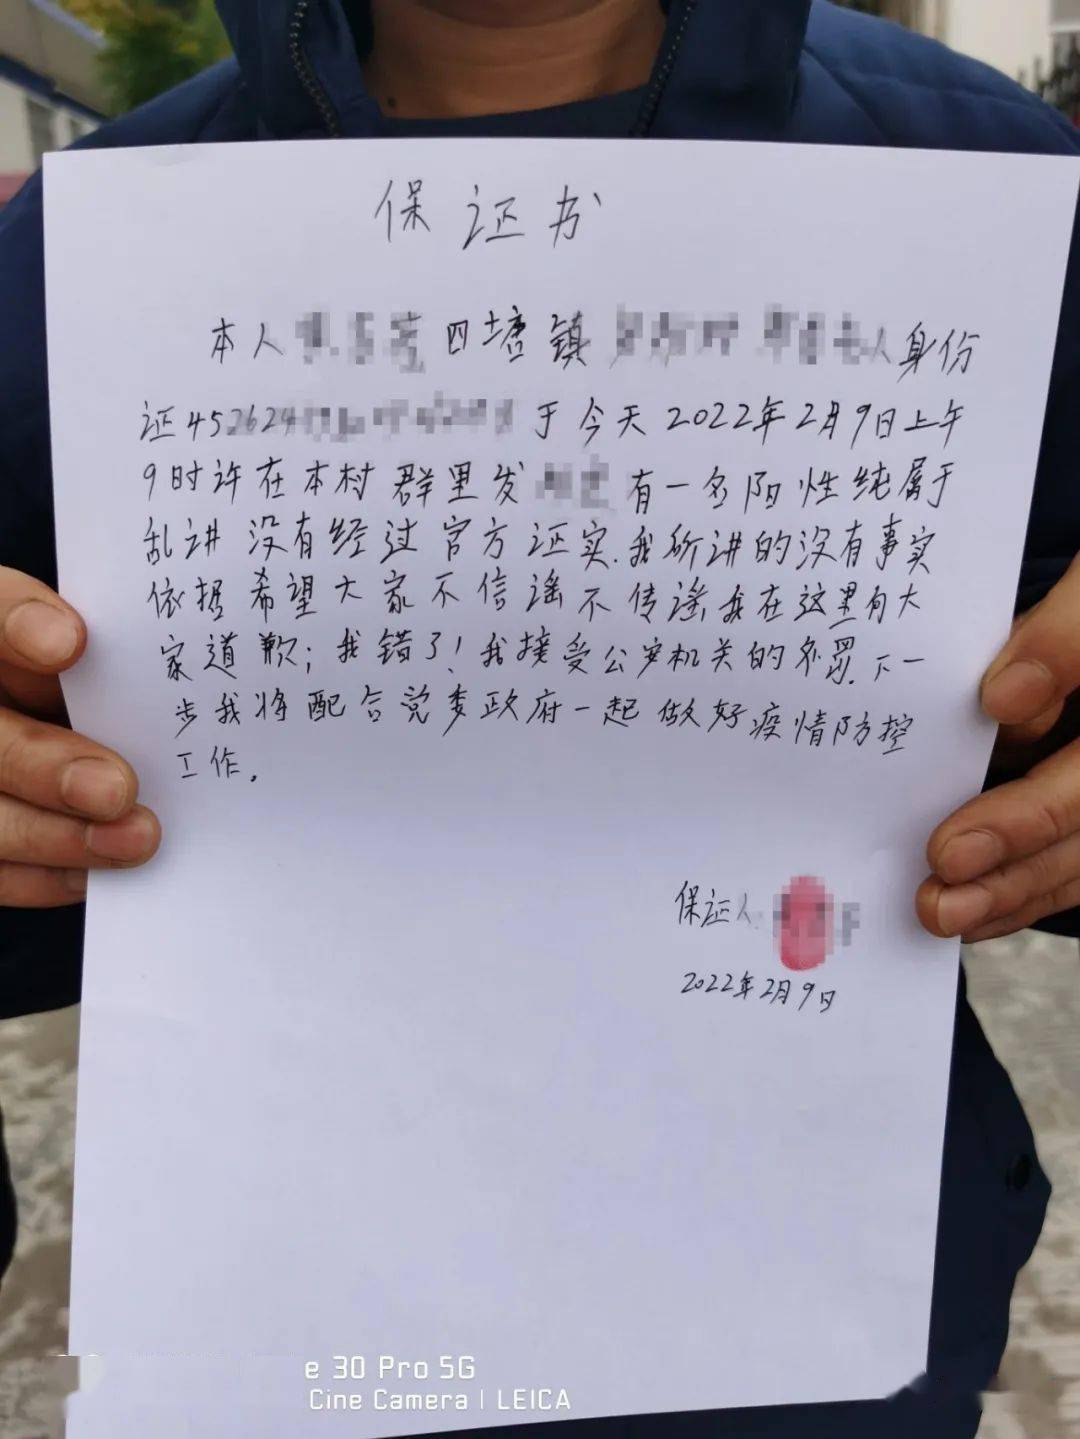 保证书
本人 四塘镇 身份
证452624 于今天2022年2月9日上午
9时许在本村群里发 有一名阳性纯属于
乱讲没有经过官方证实.我所讲的没有事实
依据希望大家不信谣不传谣我在这里向大
家道歉;我错了!我接受公安机关的处罚.下一
步我将配合党委政府一起做好疫情防控
工作.
保证人
2022年2月9日
e 30 Pro 5G
Cine Camera | LEICA